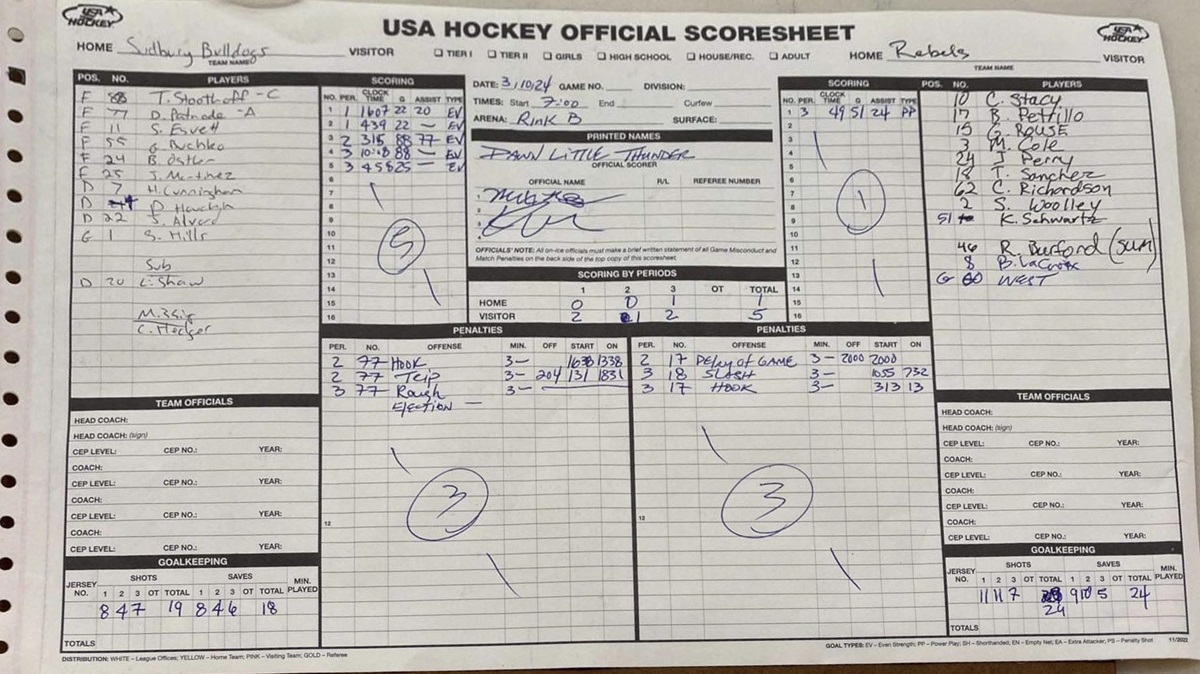 USA HOCKEY
USA HOCKEY OFFICIAL SCORESHEET
USA HOCKEY
HOME Sudbury Bulldogs VISITOR
TEAM NAME
☐ TIER I ☐ TIER II ☐ GIRLS ☐ HIGH SCHOOL ☐ HOUSE/REC. ☐ ADULT
HOME Rebels VISITOR
TEAM NAME
POS. NO. PLAYERS
F 88 T. Stoothoff -C
F 77 D. Patnode -A
F 11 S. Esvett
F 55 G. Buchko
F 24 B.
F 25 J. Martinez
D 7 H. Cunningham
D
D 22 S.
G 1 S. Mills
Sub
D 20 L. Shaw
C. Hedger
SCORING
NO. PER. CLOCK TIME G ASSIST TYPE
1 1 1607 22 20 EV
2 1 439 22 — EV
3 2 315 88 77 EV
4 3 10:18 88 — EV
5 3 458 25 — EV
6
7
8
9
10
11
12
13
14
15
16
5
DATE: 3/10/24 GAME NO. DIVISION:
TIMES: Start 7:00 End Curfew
ARENA: Rink B SURFACE:
PRINTED NAMES
DAWN LITTLE THUNDER
OFFICIAL SCORER
OFFICIAL NAME R/L REFEREE NUMBER
1
2
3
4
OFFICIALS' NOTE: All on-ice officials must make a brief written statement of all Game Misconduct and
Match Penalties on the back side of the top copy of this scoresheet.
SCORING BY PERIODS
1 2 3 OT TOTAL
HOME 0 0 1 1
VISITOR 2 1 2 5
SCORING
NO. PER. CLOCK TIME G ASSIST TYPE
1 3 49 51 24 PP
2
3
4
5
6
7
8
9
10
11
12
13
14
15
16
1
POS. NO. PLAYERS
10 C. Stacy
17 B. Pettillo
15 G. ROUSE
3 M. Cole
24 J. Perry
18 T. Sanchez
62 C. Richardson
2 S. Woolley
51 K. Schwartz
46 R. Burford (SUM)
8 B. LaCroix
G 60 WEST
PENALTIES
PER. NO. OFFENSE MIN. OFF START ON
2 77 HOOK 3— 1638 1338
2 77 Trip 3— 204 131 1831
3 77 Rough 3—
EJECTION —
12
3
PENALTIES
PER. NO. OFFENSE MIN. OFF START ON
2 17 DELAY OF GAME 3— 2000 2000
3 18 SLASH 3— 1055 732
3 17 HOOK 3— 313 13
12
3
TEAM OFFICIALS
HEAD COACH:
HEAD COACH: (sign)
CEP LEVEL: CEP NO.: YEAR:
COACH:
CEP LEVEL: CEP NO.: YEAR:
COACH:
CEP LEVEL: CEP NO.: YEAR:
COACH:
CEP LEVEL: CEP NO.: YEAR:
GOALKEEPING
JERSEY NO. SHOTS SAVES MIN. PLAYED
1 2 3 OT TOTAL 1 2 3 OT TOTAL
8 4 7 19 8 4 6 18
TOTALS
TEAM OFFICIALS
HEAD COACH:
HEAD COACH: (sign)
CEP LEVEL: CEP NO.: YEAR:
COACH:
CEP LEVEL: CEP NO.: YEAR:
COACH:
CEP LEVEL: CEP NO.: YEAR:
COACH:
CEP LEVEL: CEP NO.: YEAR:
GOALKEEPING
JERSEY NO. SHOTS SAVES MIN. PLAYED
1 2 3 OT TOTAL 1 2 3 OT TOTAL
11 11 7 9 10 5 24
24
TOTALS
DISTRIBUTION: WHITE – League Offices; YELLOW – Home Team; PINK – Visiting Team; GOLD – Referee
GOAL TYPES: EV – Even Strength; PP – Power Play; SH – Shorthanded, EN – Empty Net; EA – Extra Attacker, PS – Penalty Shot 11/2022